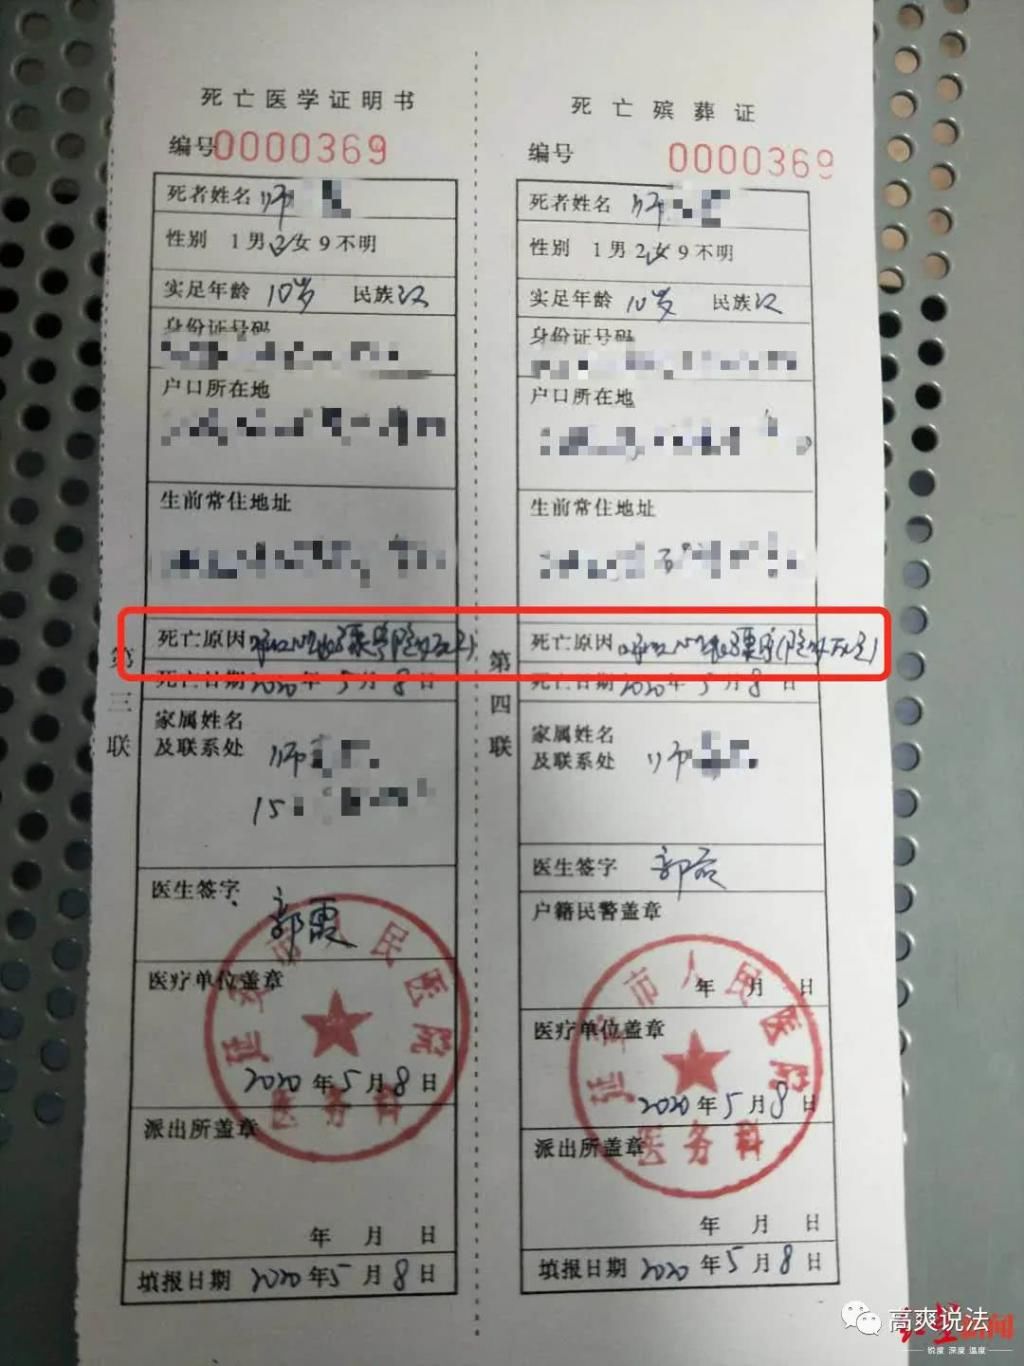 死亡医学证明书
编号0000369
死者姓名 师
性别 1男2女9不明
实足年龄 10岁 民族汉
身份证号码
户口所在地
生前常住地址
死亡原因 呼吸心跳骤停(院外死亡)
死亡日期2020年5月8日
家属姓名
及联系处 师
15
医生签字 郭霞
医疗单位盖章
2020年5月8日
市人民医院
医务科
派出所盖章
年 月 日
填报日期 2020年5月8日
第三联
死亡殡葬证
编号 0000369
死者姓名 师
性别 1男2女9不明
实足年龄 10岁 民族汉
身份证号码
户口所在地
生前常住地址
死亡原因 呼吸心跳骤停(院外死亡)
死亡日期2020年5月8日
家属姓名
及联系处 师
医生签字 郭霞
户籍民警盖章
年 月 日
医疗单位盖章
2020年5月8日
市人民医院
医务科
派出所盖章
年 月 日
填报日期 2020年5月8日
第四联
高爽说法
红星新闻
锐度 深度 温度